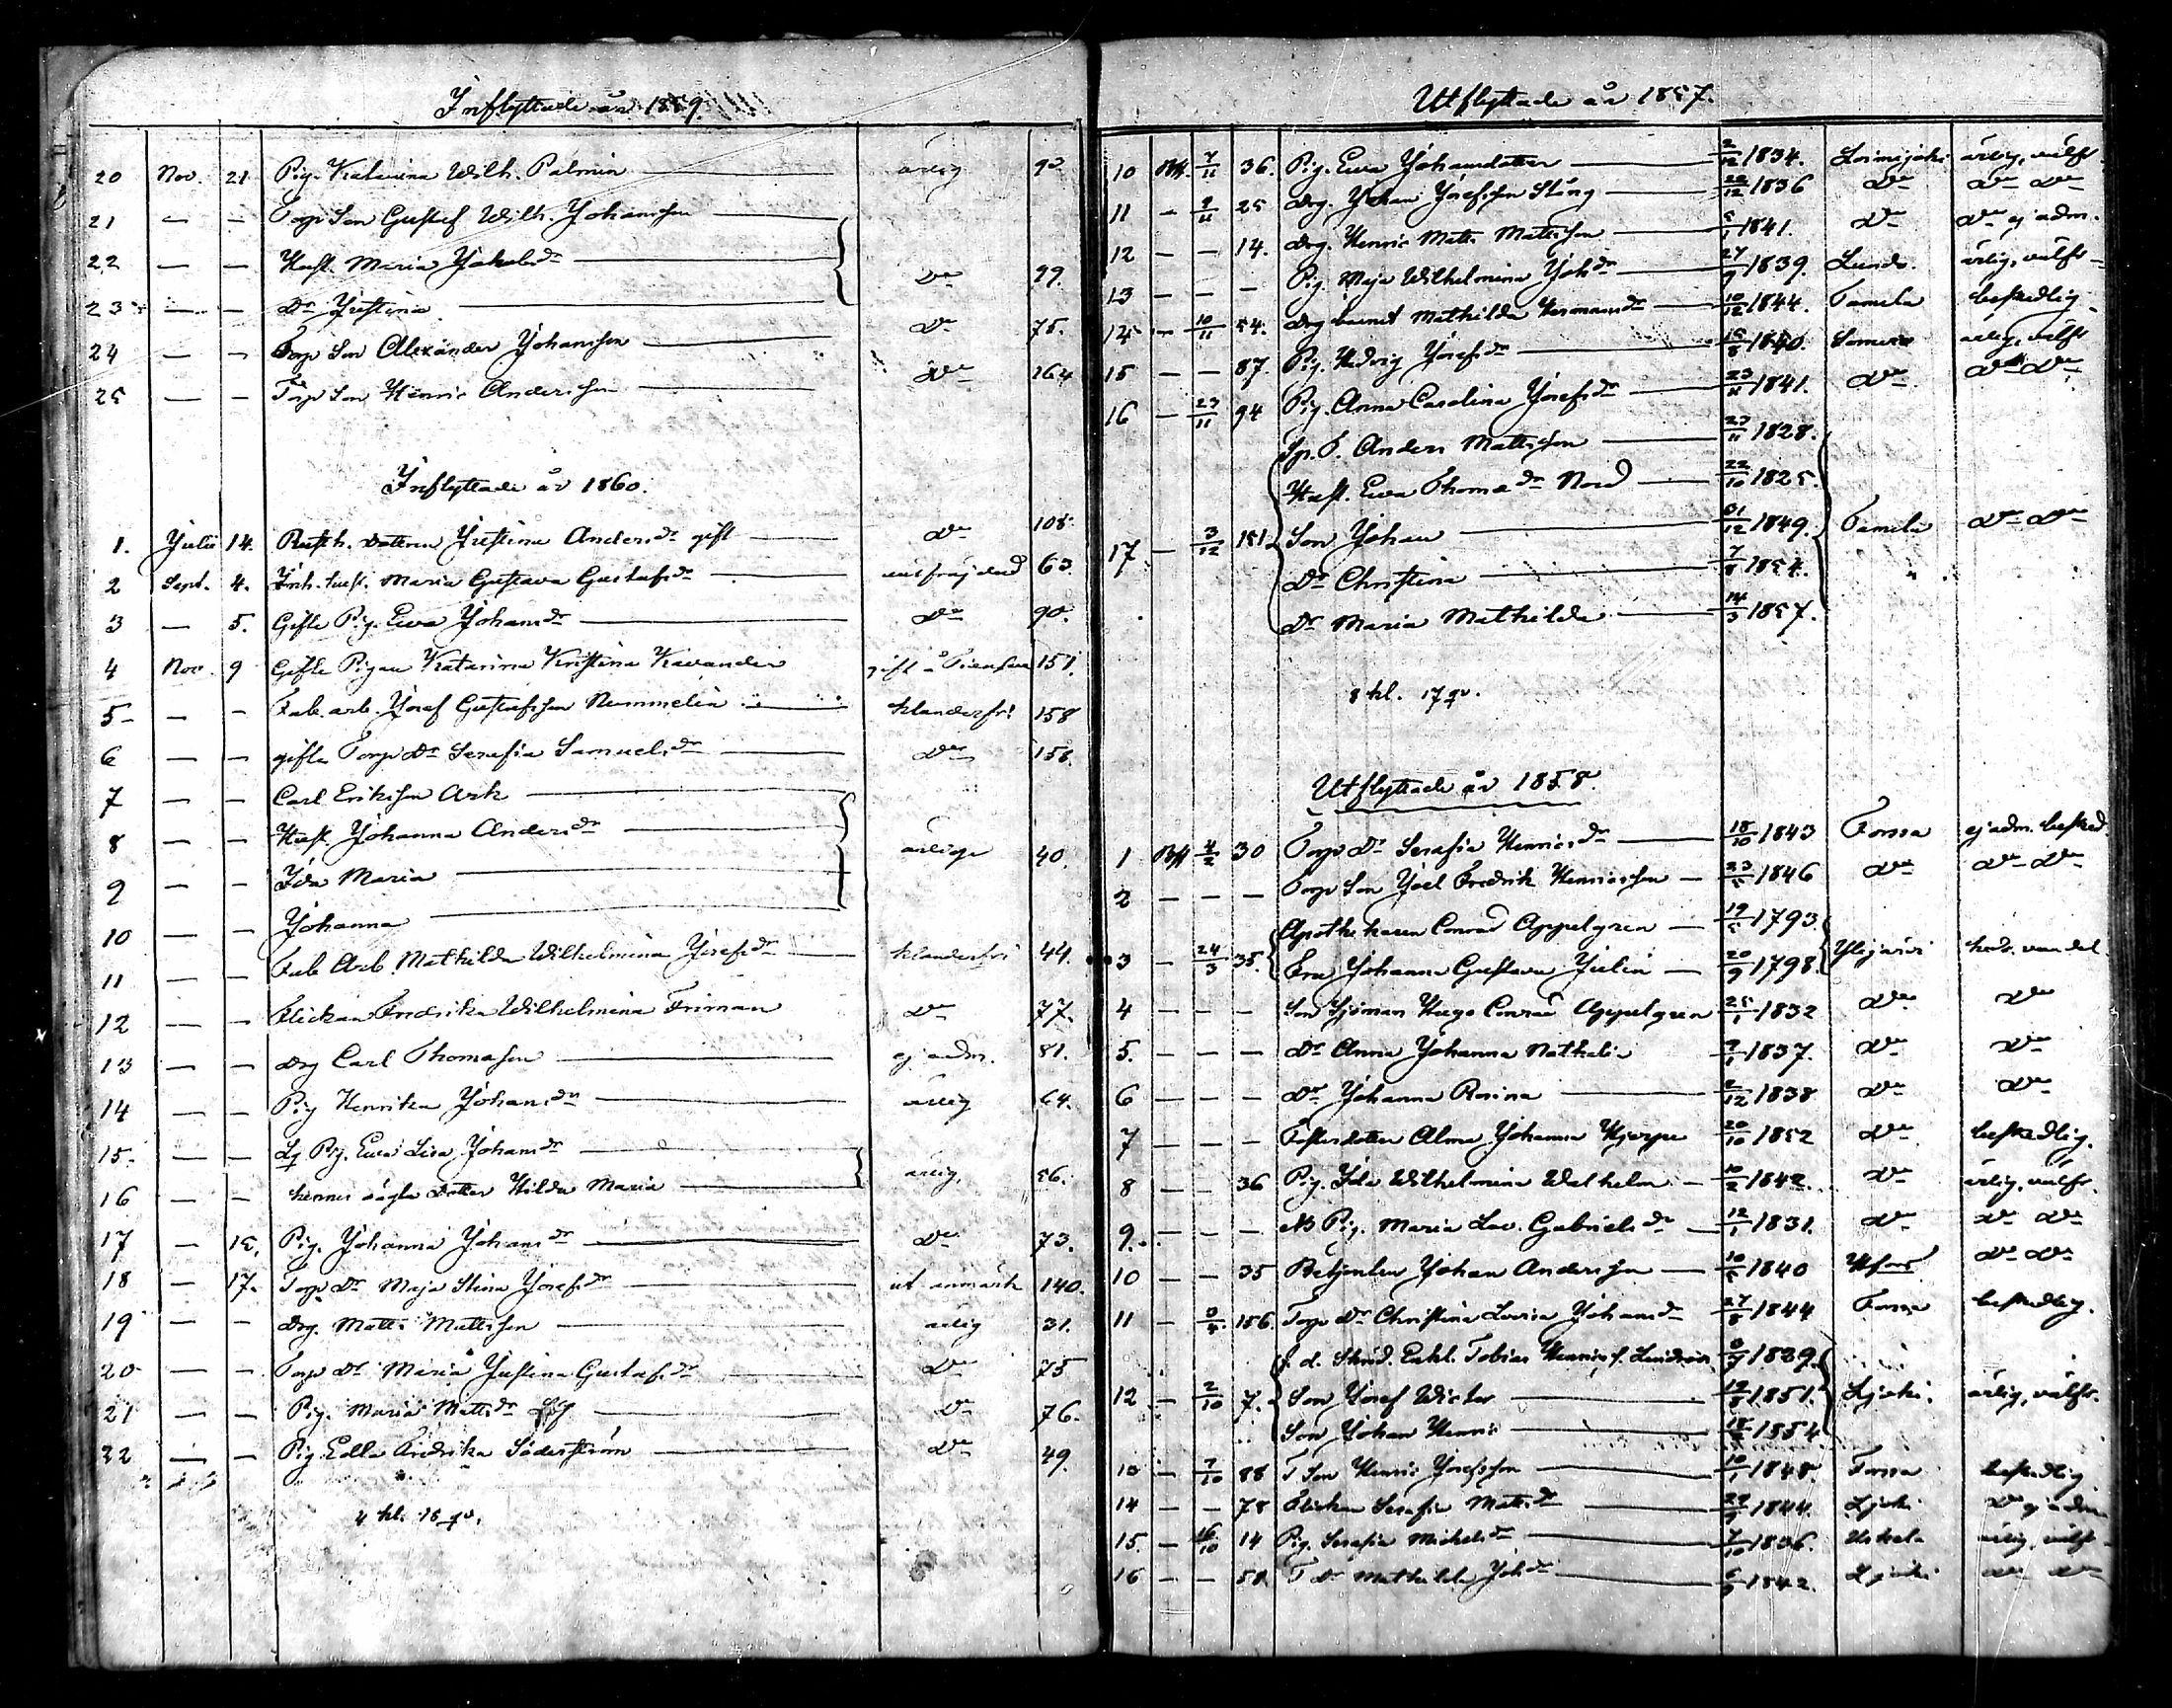 Inflyttade år 1859.
20 Nov. 21 Pig. Katarina Wilh. Palmin ärlig 90
21 — — Torp Son Gustaf Wilh. Johansson
22 — — Hust. Maria Jakobsdr Do 99.
23 — — Dr Justina
24 — — Torp Son Alexander Johansson Do 75.
25 — — Torp Son Henric Andersson Do 164
Inflyttade år 1860.
1. Julii 14. Rusth. Dottren Justina Andersdr gift Do 108
2 Sept. 4. Inh. hust. Maria Gustava Gustafsdr 63.
3 — 5. Gifta Pig. Eva Johansdr Do 90.
4 Nov. 9 Gifta Pigan Katarina Kristina Kavander gift 151.
5 — — Fab. arb. Josef Gustafsson Nummelin klanderfri 158
6 — — gifta Torp Dr Serafia Samuelsdr Do 158.
7 — — Carl Eriksson Ark
8 — — Hust. Johanna Andersdr ärliga 40.
9 — — Ida Maria
10 — — Johanna
11 — — Fab Arb Mathilda Wilhelmina Josefsdr klanderfri 44.
12 — — Flickan Fredrika Wilhelmina Friman Do 77.
13 — — Drg Carl Thomasson ej adm. 81.
14 — — Pig Henrika Johansdr ärlig 64.
15. — — Lg Pig. Eva Lisa Johansdr ärlig, 56.
16 — — hennes oägta Dotter Hilda Maria
17 — 15. Pig. Johanna Johansdr Do 73.
18 — 17. Torp Dr Maja Stina Josefsdr ut anmärk 140.
19 — — Drg. Matts Mattsson ärlig 31.
20 — — Torp Dr Maria Justina Gustafsdr Do 75
21 — — Pig. Maria Mattsdr Do 76.
22 — — Pig. Edla Fredrika Söderström Do 49.
4 kl. 18 qv.
Utflyttade år 1857.
10 7/11 36. Pig. Eva Johansdotter 2/12 1834. Loimijoki ärlig, välfr.
11 — 9/11 25 Drg. Johan Josefsson Stång 22/12 1836 Do Do Do
12 — — 14. Drg. Henric Matts Mattsson 5/1 1841. Do Do ej adm.
13 — — — Pig. Maja Wilhelmina Johdr 27/9 1839. Lundo. ärlig, välfr
14 — 10/11 54. Drg barnet Mathilda Hermansdr 10/12 1844. Tamela beskedlig
15 — — 87. Pig. Hedvig Josefsdr 15/8 1840. Somero ärlig, välfr
16 — 23/11 94 Pig. Anna Carolina Josefsdr 23/11 1841. Do Do Do
Sp. T. Anders Mattsson 23/11 1828.
Hust. Eva Thomædr Nord 22/10 1825.
17 — 3/12 151. Son Johan 31/12 1849. Tamela Do Do
Dr Christina 7/8 1854.
Dr Maria Mathilda 14/3 1857.
8 kl. 17 qv.
Utflyttade år 1858.
1 4/2 30 Torp Dr Serafia Henricsdr 18/10 1843 Forssa ej adm. besked.
2 — — — Torp Son Joel Fredrik Henricsson 23/5 1846 Do Do Do
Apothekaren Conrad Appelgren 19/5 1793.
3 — 24/3 35. Fru Johanna Gustava Julin 20/9 1798. Ylöjärvi hed. vandel
4 — — — Son Sjöman Hugo Conrad Appelgren 25/1 1832 Do Do
5. — — — Dr Anna Johanna Nathalia 9/1 1837. Do Do
6 — — — Dr Johanna Rosina 2/12 1838 Do Do
7 — — — Fosterdotter Alma Johanna Hjerpe 20/10 1852 Do beskedlig.
8 — — 36 Pig. Ida Wilhelmina Walhelm 10/2 1842. Do ärlig, välfr.
9. — — — Pig. Maria Lov. Gabrielsdr 12/1 1831. Do Do Do
10 — — 35 Betjenten Johan Andersson 10/5 1840 Hfors Do Do
11 — 156. Torp Dr Christina Lovisa Johansdr 27/8 1844 Forssa beskedlig.
f. d. Skräd. Enkl. Tobias Henrics. Lindroos 1829.
12 — 2/10 7. Son Josef Wictor 1851. Ljoki ärlig, välfr.
Son Johan Henric 1854
13 — 7/10 88 T Son Henric Josefsson 10/1 1848. Forssa beskedlig
14 — — 78 Flickan Serafia Mattsdr 1844. Ljoki Do ej adm
15. — 16/10 14 Pig. Serafia Michelsdr 7/10 1836. Uskela ärlig, välfr
16 — — 58 T Dr Mathilda Johdr 1842. Ljoki Do Do